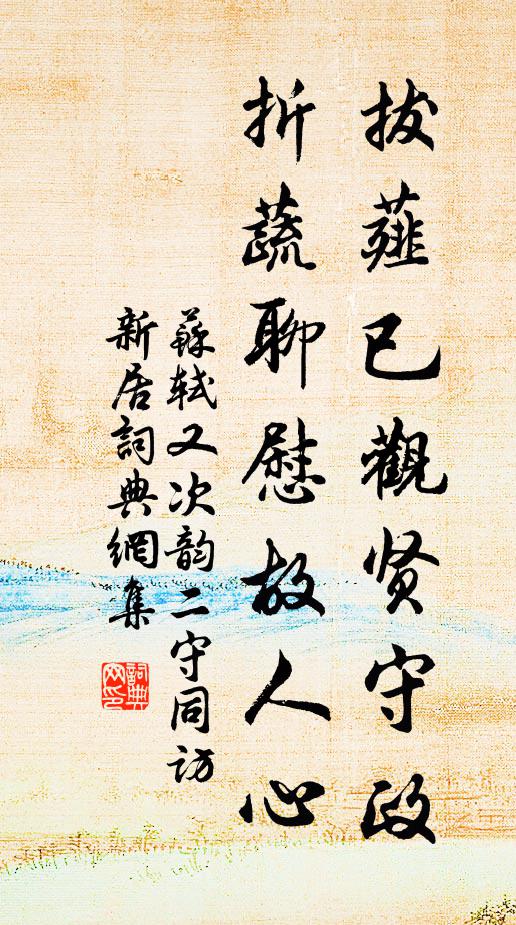 拔薤已觀贤守政
折蔬聊慰故人心
蘇軾又次韵二守同访
新居詞典網集
詞典
网印